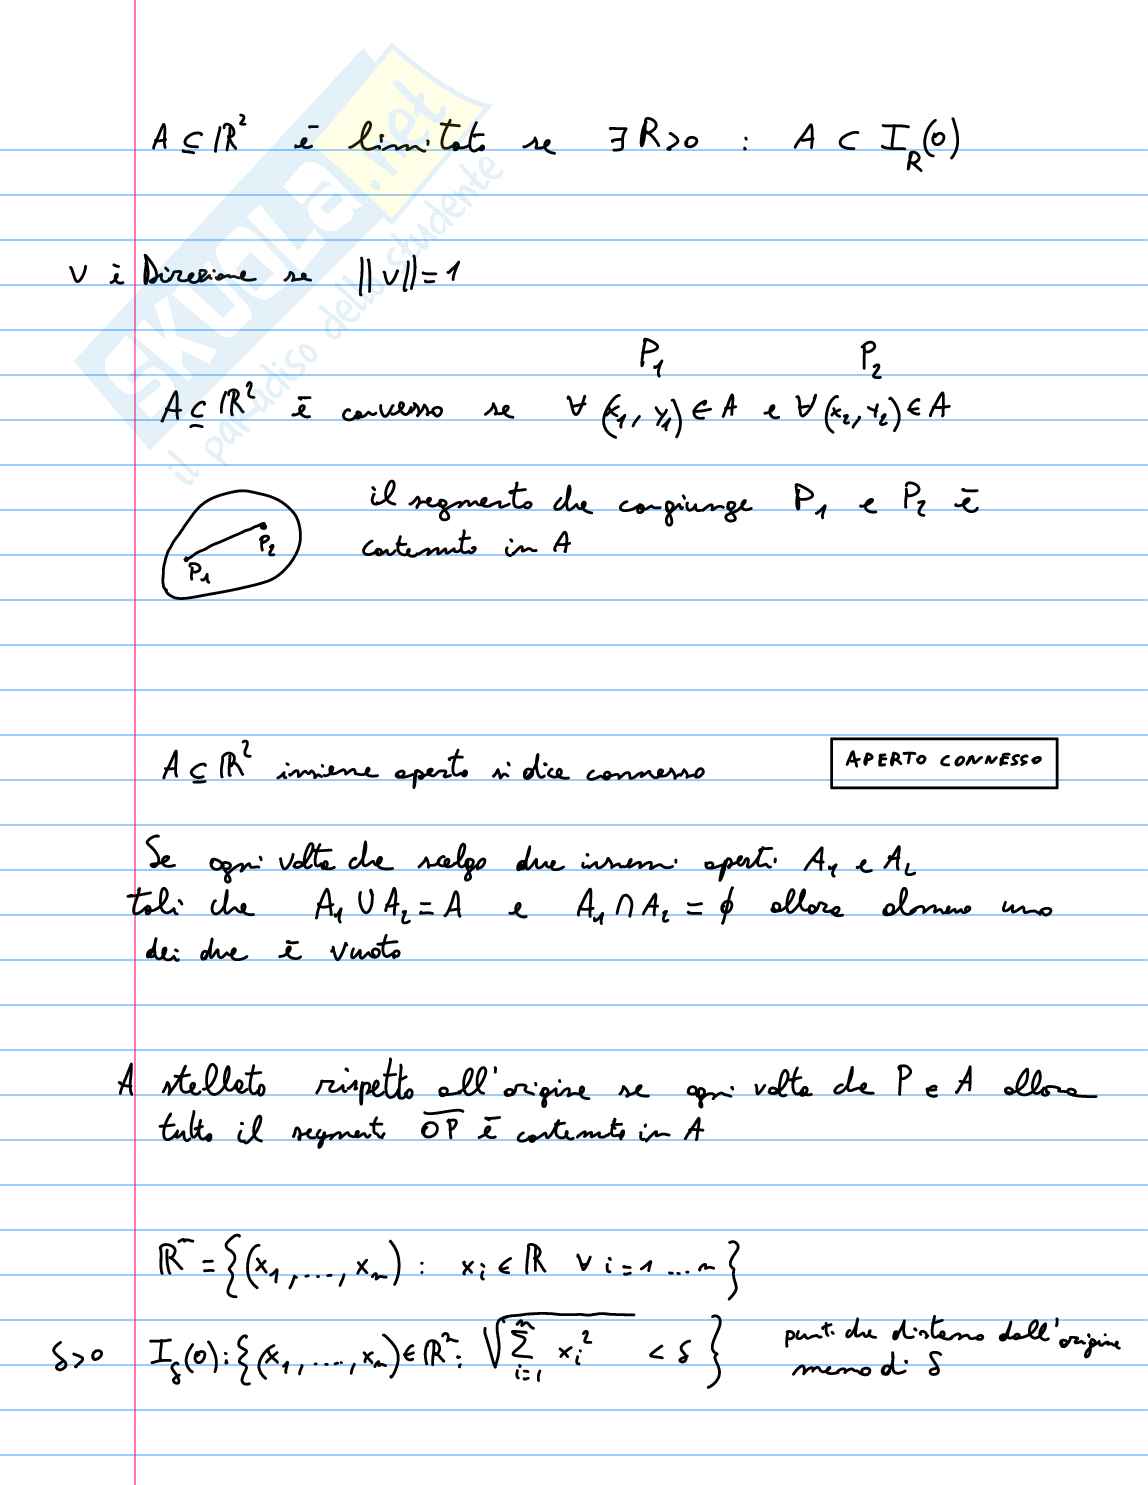 A ⊆ ℝ² è limitato se ∃ R>0 : A ⊂ I_R(0)
v è Direzione se ||v||=1
P₁ P₂
A ⊆ ℝ² è convesso se ∀ (x₁, y₁) ∈ A e ∀ (x₂, y₂) ∈ A
il segmento che congiunge P₁ e P₂ è
contenuto in A
P₁ P₂
A ⊆ ℝ² insieme aperto si dice connesso
APERTO CONNESSO
Se ogni volta che scelgo due insiemi aperti A₁ e A₂
tali che A₁ ∪ A₂ = A e A₁ ∩ A₂ = ϕ allora almeno uno
dei due è vuoto
A stellato rispetto all'origine se ogni volta che P ∈ A allora
tutto il segmento O̅P̅ è contenuto in A
ℝⁿ = {(x₁, ..., xₙ) : xᵢ ∈ ℝ ∀ i = 1 ... n}
δ>0 I_δ(0) : {(x₁, ..., xₙ) ∈ ℝ² : √(∑ᵢ₌₁ⁿ xᵢ²) < δ}
punti che distano dall'origine
meno di δ
SKUOLA.net
il paradiso dello studente